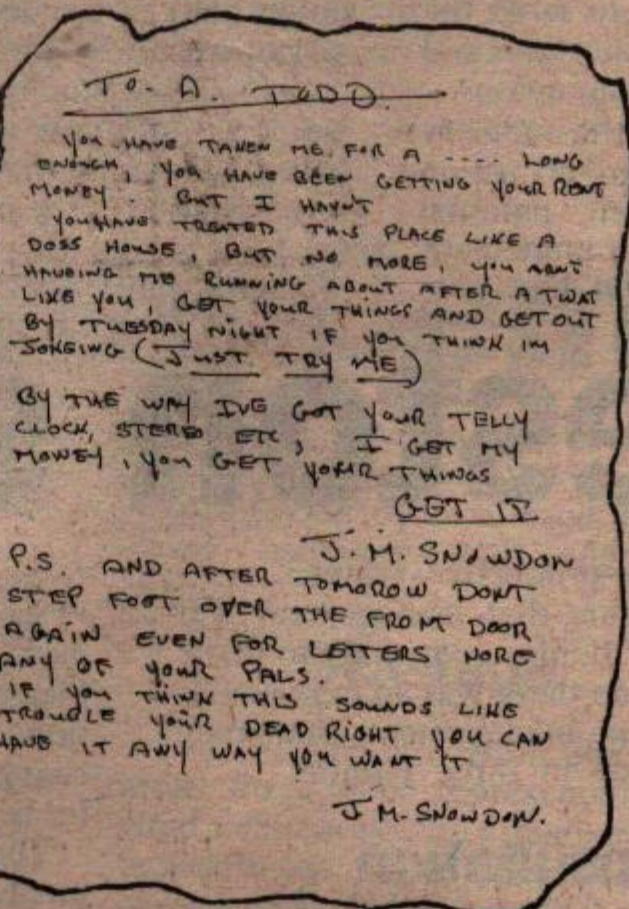 TO. A. TODD.
YOU HAVE TAKEN ME FOR A .... LONG
ENOUGH, YOU HAVE BEEN GETTING YOUR RENT
MONEY. BUT I HAVN'T
YOU HAVE TREATED THIS PLACE LIKE A
DOSS HOUSE, BUT NO MORE, YOU AON'T
HAVEING ME RUNNING ABOUT AFTER A TWAT
LIKE YOU, GET YOUR THINGS AND GET OUT
BY TUESDAY NIGHT IF YOU THINK IM
JOKEING (JUST TRY ME)
BY THE WAY IVE GOT YOUR TELLY
CLOCK, STEREO ETC, I GET MY
MONEY, YOU GET YOUR THINGS
GET IT
J. M. SNOWDON
P.S. AND AFTER TOMOROW DONT
STEP FOOT OVER THE FRONT DOOR
AGAIN EVEN FOR LETTERS NORE
ANY OF YOUR PALS.
IF YOU THINK THIS SOUNDS LIKE
TROUBLE YOUR DEAD RIGHT YOU CAN
HAVE IT ANY WAY YOU WANT IT
J M. SNOWDON.